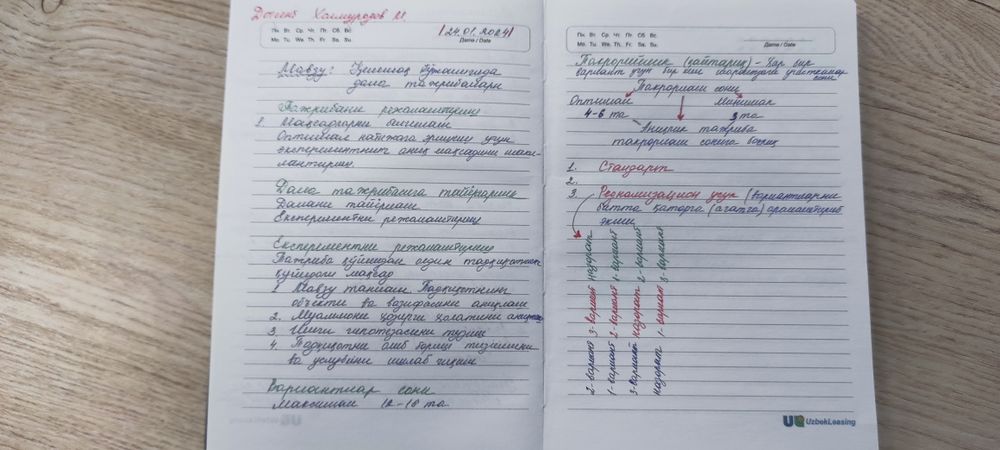 Доцент Холмуродов М.
Пн. Вт. Ср. Чт. Пт. Сб. Вс.
Mo. Tu. We. Th. Fr. Sa. Su.
24.01.2024
Дата / Date
Мавзу: Ўсимлик
дала тажрибалари
Тажрибани режалаштириш
1. Мақсадларни белгилаш
Оптимал натижага эришиш учун
экспериментнинг аниқ мақсадини шакл-
лантириш.
Дала тажрибасига тайёргарлик
Далани тайёрлаш
Экспериментни режалаштириш
Експерементни режалаштириш
Тажриба қўйишдан олдин тадқиқотнинг
қуйидаги мақсад
1 Мавзу танлаш. Тадқиқотнинг
объекти ва вазифасини аниқлаш
2. Муаммони ҳозирги ҳолатини аниқлаш
3. Ишчи гипотезасини тузиш
4. Тадқиқотни олиб бориш тизимини
ва услубини ишлаб чиқиш
Вариантлар сони
Максимал 12-18 та
Пн. Вт. Ср. Чт. Пт. Сб. Вс.
Mo. Tu. We. Th. Fr. Sa. Su.
Дата / Date
Такрорийлик (қайтариқ) - ҳар бир
вариант учун бир хил участкалар
сони
Такрорлаш сони
Оптимал Минимал
4-6 та 3 та
Аниқлик тажриба
такрорлаш сонига боғлиқ
1. Стандарт
2.
3. Рендомизацион усул (вариантларни
битта қаторга (аралаштириб
экиш
назорат 1-вариант 2-вариант 3-вариант
3-вариант 2-вариант назорат 1-вариант
2-вариант 1-вариант 3-вариант назорат
UzbekLeasing